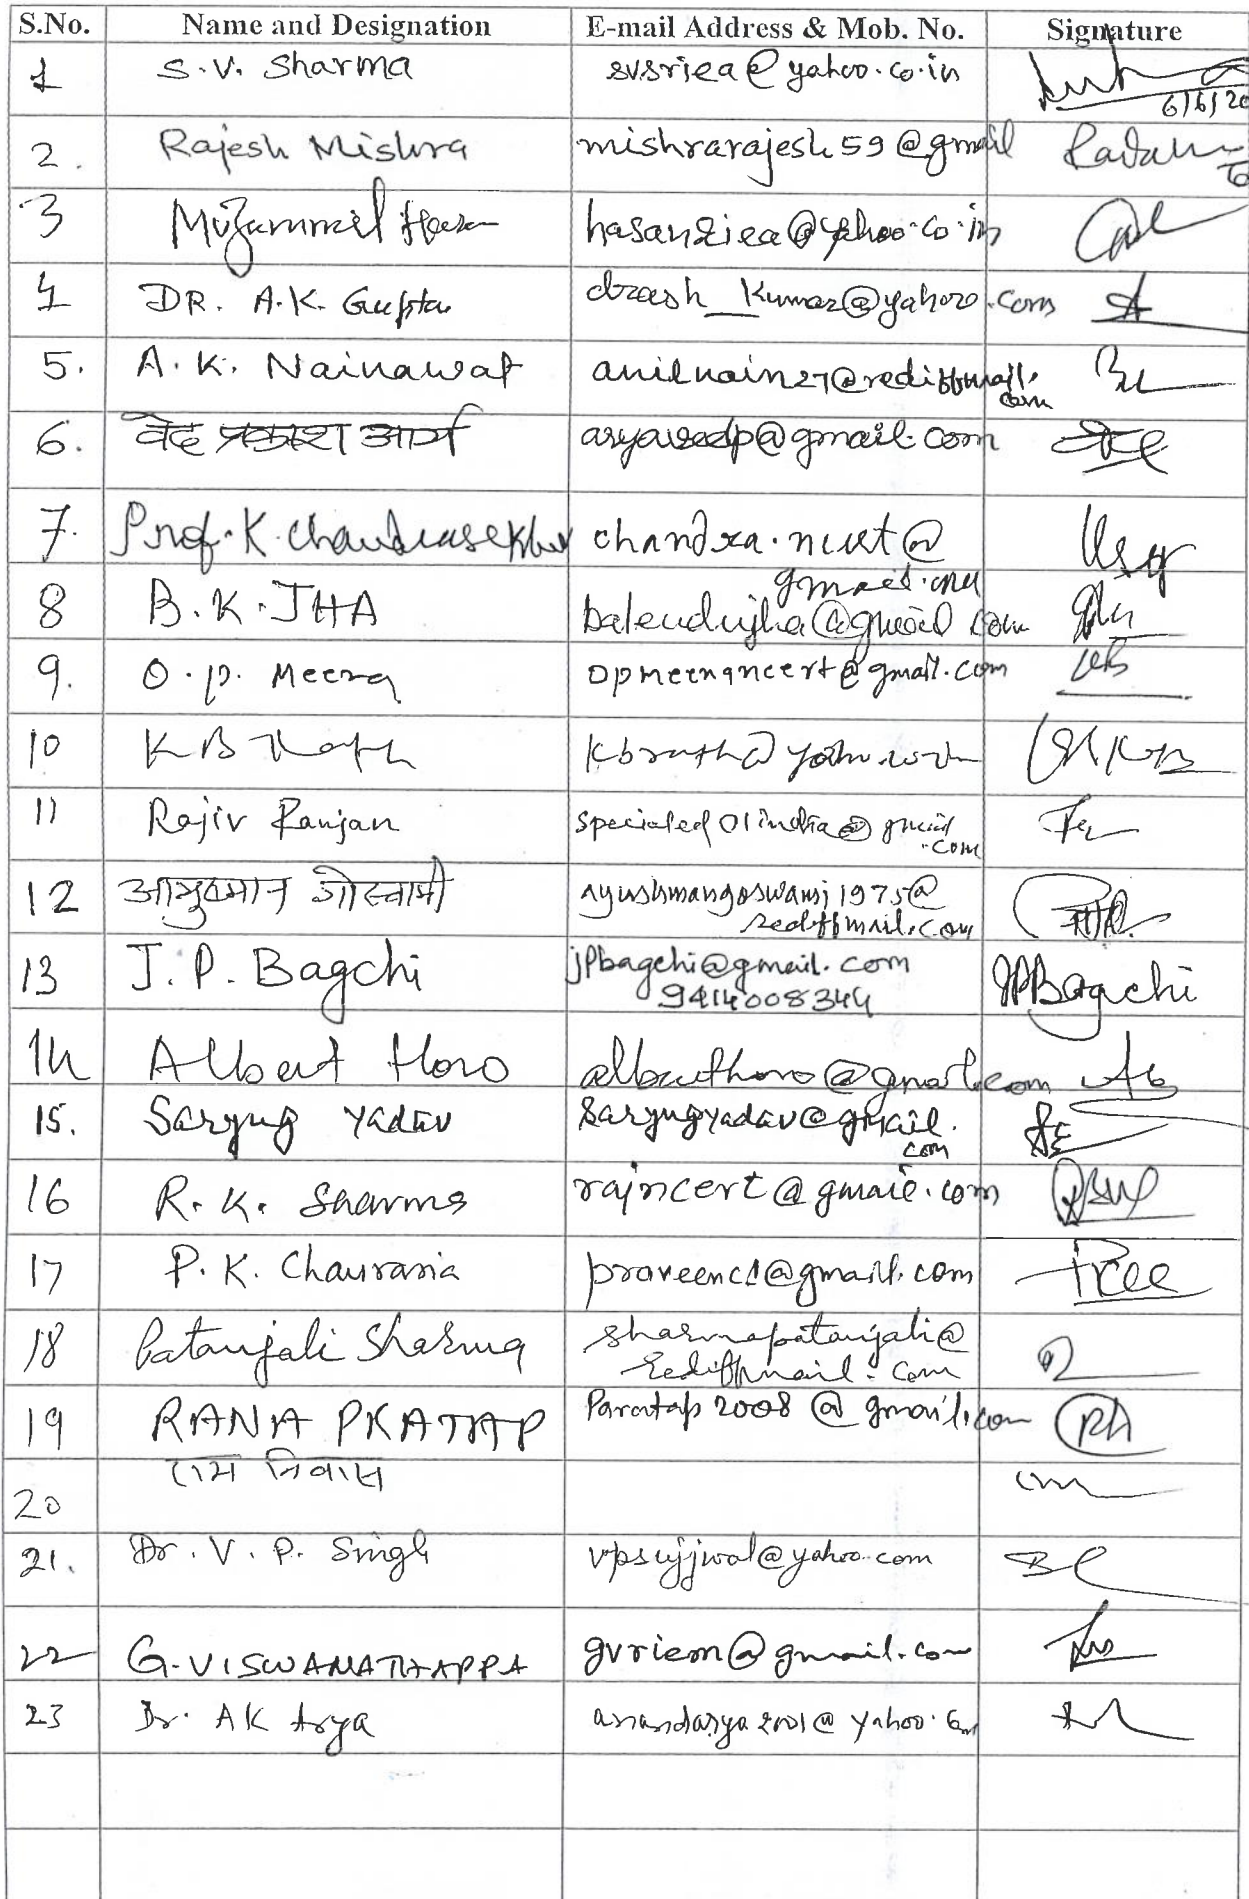 S.No. Name and Designation E-mail Address & Mob. No. Signature
1 S.V. Sharma svsriea@yahoo.co.in
6/6/20
2. Rajesh Mishra mishrarajesh59@gmail
3 Muzammil Hasan hasanriea@yahoo.co.in
4 DR. A.K. Gupta drash_kumar@yahoo.com
5. A.K. Nainawat anilnain27@rediffmail.
com
6. वेद प्रकाश आर्य aryavedp@gmail.com
7. Prof. K. Chandrasekhar chandra.ncert@
gmail.com
8 B.K. JHA balendujha@gmail.com
9. O.P. Meena opmeenancert@gmail.com
10 K B Rath kbrath@yahoo.com
11 Rajiv Ranjan specialed01india@gmail
.com
12 आयुष्मान गोस्वामी ayushmangoswami1975@
rediffmail.com
13 J.P. Bagchi jpbagchi@gmail.com JPBagchi
9414008344
14 Albert Horo alberthoro@gmail.com
15. Saryug Yadav saryugyadav@gmail.
com
16 R.K. Sharma rajncert@gmail.com
17 P.K. Chaurasia praveencl@gmail.com
18 Patanjali Sharma sharmapatanjali@
rediffmail.com
19 RANA PRATAP Paratap2008@gmail.com
20 राम निवास
21. Dr. V.P. Singh vpsujjwal@yahoo.com
22 G.VISWANATHAPPA gvriem@gmail.com
23 Dr. AK Arya anandarya2001@yahoo.com